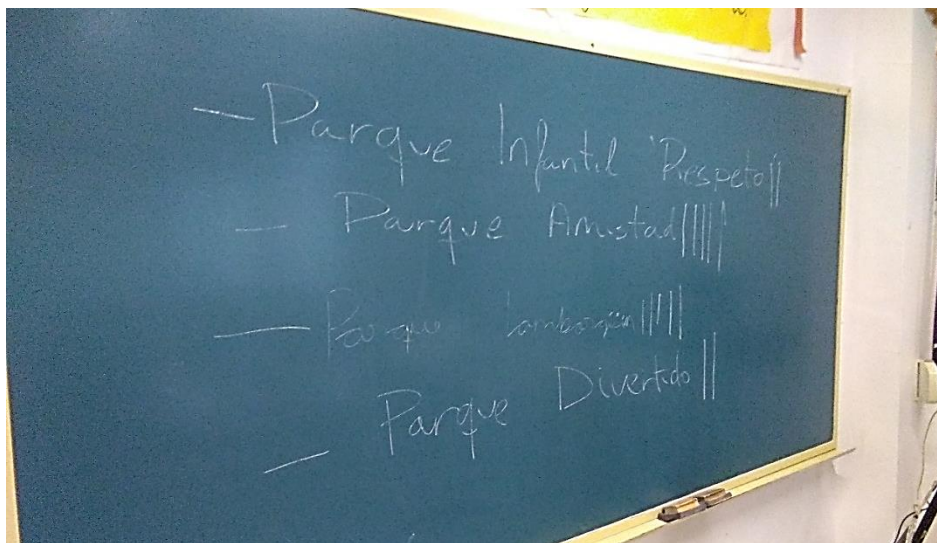 — Parque Infantil 'Respeto ||
— Parque Amistad ||||||
— Parque Lamborgini |||||
— Parque Divertido ||